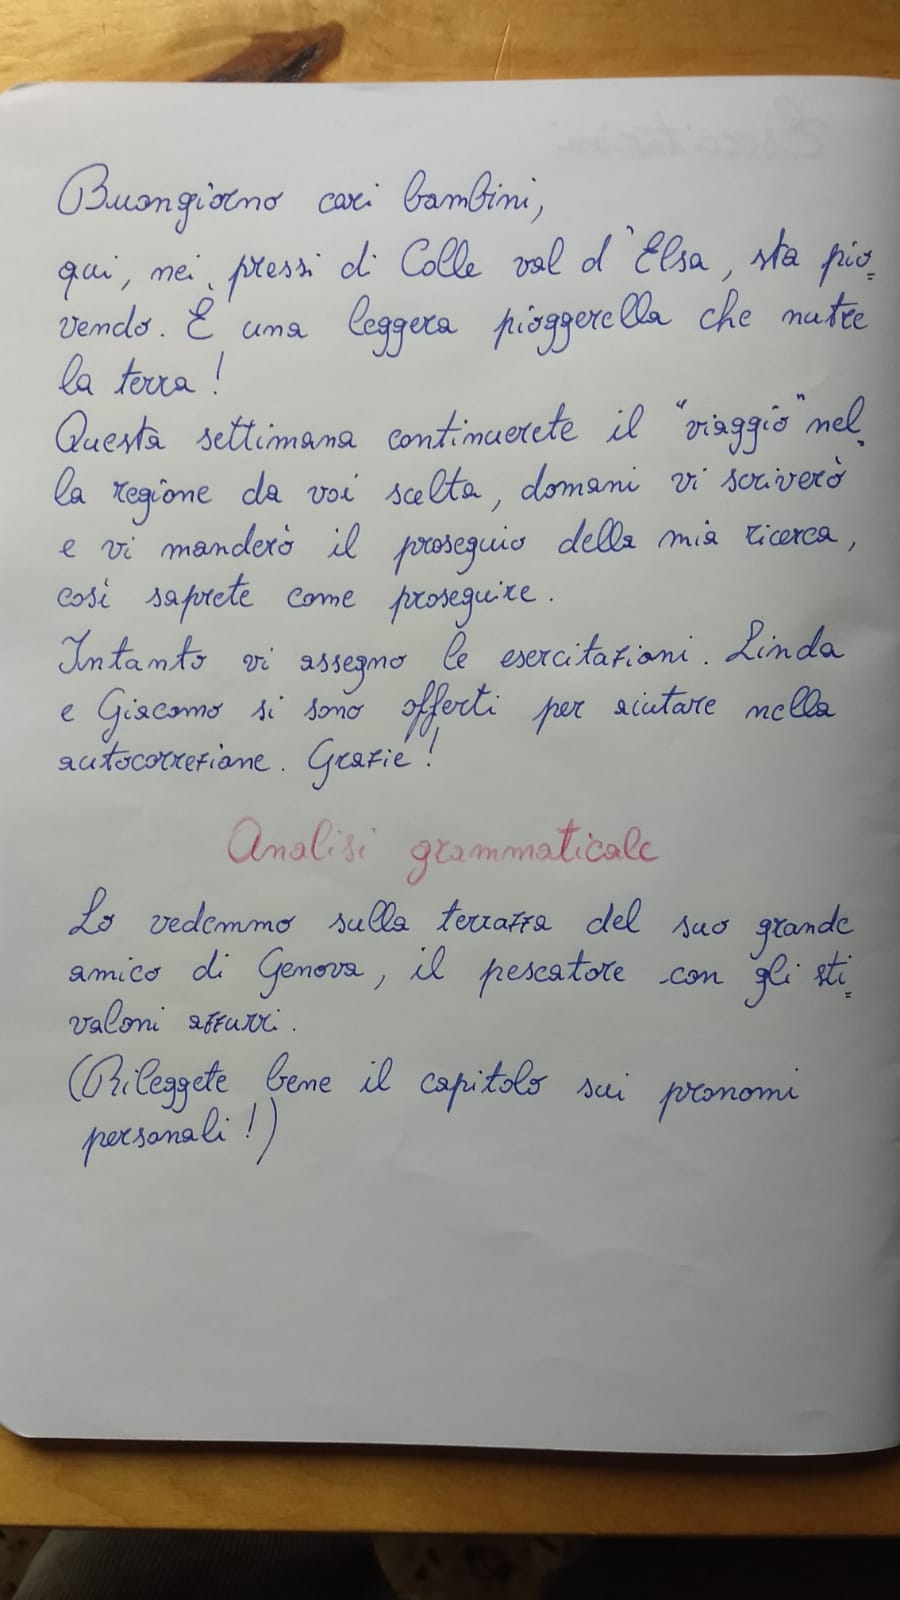 Buongiorno cari bambini,
qui, nei pressi di Colle val d'Elsa, sta pio=
vendo. È una leggera pioggerella che nutre
la terra!
Questa settimana continuerete il "viaggio" nel=
la regione da voi scelta, domani vi scriverò
e vi manderò il proseguio della mia ricerca,
così saprete come proseguire.
Intanto vi assegno le esercitazioni. Linda
e Giacomo si sono offerti per aiutare nella
autocorrezione. Grazie!
Analisi grammaticale
Lo vedemmo sulla terrazza del suo grande
amico di Genova, il pescatore con gli sti=
valoni azzurri.
(Rileggete bene il capitolo sui pronomi
personali!)